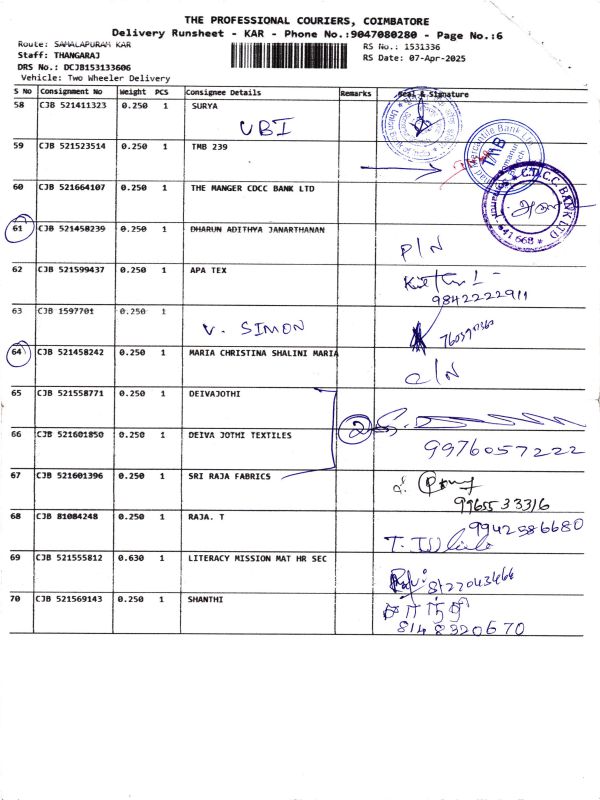 THE PROFESSIONAL COURIERS, COIMBATORE
Delivery Runsheet - KAR - Phone No.:9047080280 - Page No.:6
Route: SAMALAPURAM KAR
RS No.: 1531336
Staff: THANGARAJ
RS Date: 07-Apr-2025
DRS No.: DCJB153133606
Vehicle: Two Wheeler Delivery
S No Consignment No Weight PCS Consignee Details Remarks Seal & Signature
58 CJB 521411323 0.250 1 SURYA
UBI
59 CJB 521523514 0.250 1 TMB 239
TMB
60 CJB 521664107 0.250 1 THE MANGER CDCC BANK LTD
C.D.C.C. BANK LTD
641 668
61 CJB 521458239 0.250 1 DHARUN ADITHYA JANARTHANAN
P/N
62 CJB 521599437 0.250 1 APA TEX
9842222911
63 CJB 1597701 0.250 1
V. SIMON
64 CJB 521458242 0.250 1 MARIA CHRISTINA SHALINI MARIA
C/N
65 CJB 521558771 0.250 1 DEIVAJOTHI
2
66 CJB 521601850 0.250 1 DEIVA JOTHI TEXTILES
9976057222
67 CJB 521601396 0.250 1 SRI RAJA FABRICS
9965533316
68 CJB 81084248 0.250 1 RAJA. T
9942586680
69 CJB 521555812 0.630 1 LITERACY MISSION MAT HR SEC
8122043466
70 CJB 521569143 0.250 1 SHANTHI
சாந்தி
8148320670